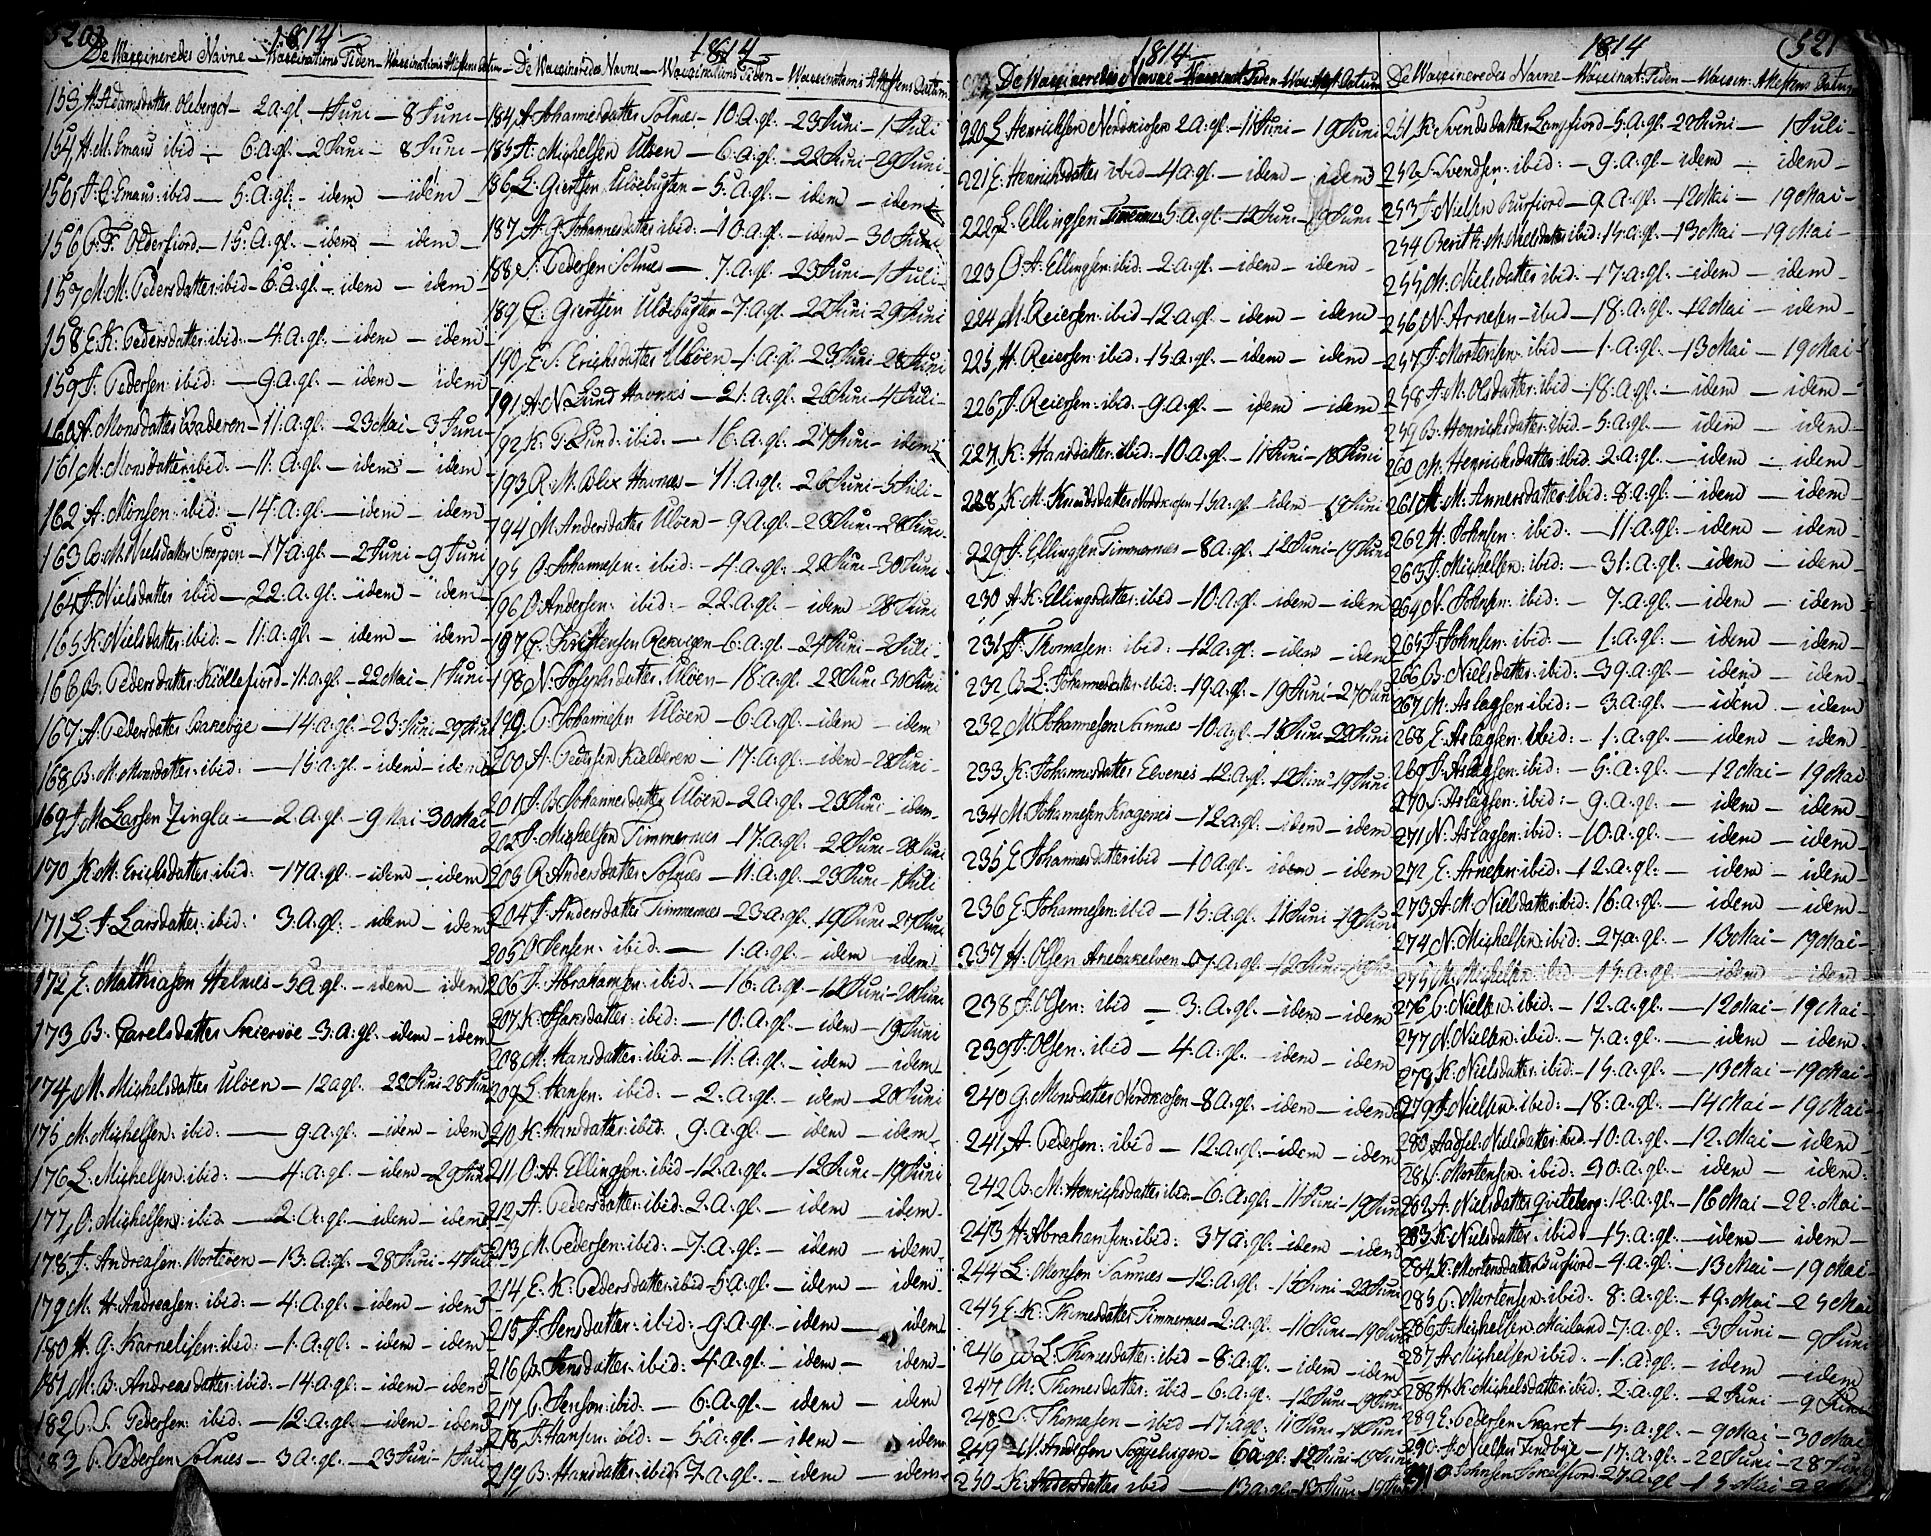 520
1814
De Waccineredes Navne – Waccinations Tiden – Waccinations Attestens Datum
153 A: Adamsdatter Olebergot – 2 a: gl: – 1 Juni – 8 Juni
154 H. M. Emaus ibid – 6. a. gl. – 2 Juni – 8 Juni
156, J. C. Emaus: ibid – 5: a: gl: – idem – idem
156 P. F. Olderfiord – 15: a: gl: – idem – idem
157 M: M: Pedersdatter: ibid – 6: a: gl: – idem – idem
158 E: K: Pedersdatter: ibid: – 4: a: gl: – idem – idem
159 J: Pedersen: ibid: – 9: a: gl: – idem – idem
160 A: Monsdatter Baderen – 11: a: gl: – 23 Mai – 3 Juni
161 M: Monsdatter: ibid: – 11: a: gl: – idem – idem
162 A: Monsen: ibid: – 14: a: gl: – idem – idem
163 B: M: Nielsdatter Skorpen – 17 a: gl: – 2 Juni – 9 Juni
164 J: Nielsdatter ibid – 22: a: gl: – idem – idem
165 K: Nielsdatter: ibid: – 11: a: gl: – idem – idem
166 B: Pedersdatter Kiöllefiord – 11: a: gl: – 22 Mai – 1 Juni
167: A: Pedersdatter Bakebye – 14: a: gl: – 23: Juni – 29 Juni
168 B: M: Monsdatter: ibid: – 15: a: gl: – idem – idem
169 J M Larsen Zingla – 2: a: gl: – 9 Mai – 30 Mai
170 K: M: Erichsdatter: ibid: – 17 a: gl: – idem – idem
171 L: A: Larsdatter: ibid: 3: a: gl: – idem – idem
172 E: Mathiasen Helnes – 5 a: gl: – idem – idem
173 B: Carelsdatter Skiervöe – 3: a: gl: – idem – idem
174 M: Michelsdatter Ulöen – 12 a gl: – 22 Juni – 28 Juni
175 M: Michelsen: ibid: – 9: a: gl: – idem – idem
176 L: Michelsen: ibid: – 4: a: gl: – idem – 29 Juni
177 O: Michelsen: ibid – 2: a: gl: – idem – idem
178 J: Andreasen: Vorteröen – 13: a: gl: – 28 Juni – 4 Juli
179 M: H: Andreasen: ibid: – 4: a: gl: – idem – idem
180 H: G: Karnelisen: ibid: – 1: a: gl: – idem – idem
181 M: B: Andreasdatter: ibid: – 14: a: gl: – idem – idem
182 P. J. Pedersen: ibid: – 12: a: gl: – idem – idem
183 P. Pedersen Solnæs – 3 a: gl: – 23 Juni – 1 Juli
1814
De Waccineredes Navne – Waccinations Tiden – Waccinations Attestens Datum
184 A Johannesdatter Solnæs – 10: a: gl: – 23 Juni – 1 Juli
185 H: Michelsen Ulöen – 6: a: gl: – 22 Juni – 29 Juni
186 L: Giertsen Ulöebugten – 5: a: gl: – idem – idem
187 A: G: Johannesdatter ibid: – 10: a: gl: – idem – 30 Juni
188 J: Pedersen Solnes – 7: a: gl: – 23 Juni – 1 Juli
189 C: Giertsen Ulöebugten – 7: a: gl: – 22 Juni – 29 Juni
190, E: S: Erichsdatter Ulöen – 1: a: gl: – 23 Juni – 28 Juni
191 A: N: Lund Havnæs – 21: a: gl: – 26 Juni – 4 Juli
192 K: P. Lund: ibid: – 16: a: gl: – 27 Juni – idem
193 R: M: Blix Havnæs – 11: a: gl: – 26 Juni – 5 Juli
194 M: Andersdatter Ulöen – 9: a: gl: – 20 Juni – 28 Juni
195 O: Johannesen: ibid: – 4: a: gl: – 22 Juni – 30 Juni
196 O: Andersen: ibid: – 22: a: gl: – idem – 28 Juni
197 C: Kristensen Rekvigen – 6: a: gl: – 24 Juni – 2 Juli
198 N: Josephsdatter Ulöen – 18: a: gl: – 22 Juni – 30 Juni
199 O: Johannesen Ulöen – 6: a: gl: – idem – idem
200 A: Pedersen Kielderen – 17: a: gl: – idem – 28 Juni
201 J: B: Johannesdatter Ulöen – 2 a: gl: – 23 Juni – idem
202 J: Michelsen Timmernes – 17: a: gl: – 20 Juni – 28 Juni
203 R: Andersdatter Solnæs – 11: a: gl: – 23 Juni – 1 Juli
204 J: Andersdatter Timmernæs – 23: a: gl: – 19 Juni – 27 Juni
205 O Jensen: ibid: – 1: a: gl: – idem – idem
206 J: Abrahamsen: ibid: – 16: a: gl: – 12 Juni – 20 Juni
207 K: Isaksdatter: ibid: – 10: a: gl: – idem – 19 Juni
208 M: Hansdatter: ibid: – 11: a: gl: – idem – idem
209 L: Hansen: ibid: – 2: a: gl: – idem – 20 Juni
210 K: Hansdatter: ibid: 9: a: gl: – idem – idem
211 O: A: Ellingsen: ibid – 12: a: gl: – 12 Juni – 19 Juni
212 A: Pedersdatter: ibid: 2: a: gl: – idem – idem
213 M: Pedersen: ibid: – 7: a: gl: – idem – idem
214 E: K: Pedersdatter: ibid – 5: a: gl: – idem – idem
215 J: Jensdatter: ibid: 9: a: gl: – idem – idem
216 B: Jensdatter: ibid: 4: a: gl: – idem – idem
217 P. Jenson: ibid: – 6: a: gl: – idem – idem
218 J: Hansen: ibid: – 5: a: gl: – idem – idem
219 B: Hansdatter: ibid: 7: a: gl: – idem – idem
1814
De Waccineredes Navne – Waccinat: Tiden – Wac: Att: Datum
220 L: Henrichsen Nordkiosen 2 a: gl: – 11 Juni – 19 Juni
221 E: Henrichsdatter ibid – 4 a gl: – idem – idem
222 L: Ellingsen Timernes 5 a: gl: – 12 Juni – 19 Juni
223 O A: Ellingsen: ibid: – 2: a: gl: – idem – idem
224 M: Reiersen: ibid – 12: a: gl: – idem – idem
225 H: Reiersen: ibid: – 15: a: gl: – idem – idem
226 J: Reiersen: ibid: – 9: a: gl: – idem – idem
227 K: Hansdatter: ibid: – 10: a: gl: – 11 Juni – 18 Juni
228 K: M: Knudsdatter Nordkiosen – 15 a: gl: – idem – 19 Juni
229 J: Ellingsen Timmernæs – 8 a: gl: – 12 Juni – 19 Juni
230 A: K: Ellingsdatter: ibid – 10: a: gl: – idem – idem
231 J: Thomasen: ibid: – 12 a: gl: – idem – idem
232 B: L: Johannesdatter: ibid: – 19: a: gl: – 19 Juni – 27 Juni
232 M Johannesen Sannæs – 10: a: gl: – 15 Juni – 22 Juni
233 K: Johannesdatter Elvenes – 12: a: gl: – 12 Juni – 19 Juni
234 M: Johannesen Kragenes – 12: a: gl: – idem – idem
235 E: Johannesdatter: ibid – 10 a: gl: – idem – idem
236 E: Johannesen: ibid – 15: a: gl: – 11 Juni – 19 Juni
237 H: Olsen Anebakelven – 7: a: gl: – 12 Juni – 19 Juni
238 J: Olsen: ibid – 3: a: gl: – idem – idem
239 J: Olsen: ibid – 4: a: gl: – idem – idem
240 G: Monsdatter Nordkiosen – 8 a: gl: – idem – idem
241 A: Pedersen: ibid – 12: a: gl: – idem – idem
242 B: M: Henrichsdatter: ibid: – 6: a: gl: – 11 Juni – 19 Juni
243 H: Abrahamsen: ibid: 37 a: gl: – idem – idem
244 L: Monsen Sannæs – 12: a: gl: – 15 Juni – 22 Juni
245 E: K: Thomesdatter Timmernes – 2: a: gl: – 11 Juni – 19 Juni
246 B: L: Thomesdatter: ibid – 8: a: gl: – idem – idem
247 M: Thomesdatter: ibid – 6: a: gl: – 12 Juni – 19 Juni
248 S: Thomasen – ibid – 17: a: gl: – 11 Juni – 18 Juni
249 W: Andersen Soppelvigen – 6 a: gl: 12 Juni – 19 Juni
250 K: Andersdatter ibid – 13 a: gl: – 13 Juni – 19 Juni
1814
521
De Waccineredes Navne – Waccinat: Tiden – Waccin: Attestens Datum
251 K: Svendsdatter Langfiord – 5: a: gl: – 22 Juni – 1 Juli
252 S: Svendsen: ibid: – 9: a: gl: – idem – idem
253 J: Nielsen Burfiord – 9: a: gl: – 12 Mai – 19 Mai
254 Berith M: Nielsdatter ibid: 15: a: gl: – 13 Mai – 19 Mai
255, M: Nielsdatter: ibid: – 17: a: gl: – idem – idem
256 N: Arnesen – ibid – 18: a: gl: – 12 Mai – idem
257 J: Mortensen: ibid – 1: a: gl: – 13 Mai – 19 Mai
258 A: M: Olsdatter: ibid – 18: a: gl: – idem – idem
259 B: Henrichsdatter: ibid: – 5: a: gl: – idem – idem
260 M: Henrichsdatter: ibid. 2: a: gl: – idem – idem
261 A: M: Annersdatter: ibid: 8: a: gl: – idem – idem
262 H: Johnsen: ibid: – 11: a: gl: – idem – idem
263 J: Michelsen: ibid: – 31: a: gl: – idem – idem
264 N: Johnsen: ibid: – 7: a: gl: – idem – idem
265 J: Johnsen: ibid: – 1: a: gl: – idem – idem
266 B: Nielsdatter: ibid: – 39: a: gl: – idem – idem
267 M: Aslagsen: ibid: – 3: a: gl: – idem – idem
268 E: Aslagsen: ibid: – 1: a: gl: – idem – idem
269 J: Aslagsen: ibid: – 5: a: gl: – 12 Mai – 19 Mai
270 S: Aslagsen: ibid: – 9: a: gl: – idem – idem
271 N: Aslagsen: ibid: – 10: a: gl: – idem – idem
272 E: Arnesen: ibid: – 12: a: gl: – idem – idem
273 A: M: Nielsdatter: ibid: 16: a: gl: – idem – idem
274 N: Michelsen: ibid: – 27 a: gl: – 13 Mai – 19 Mai
275 M: Michelsen ibid – 15: a: gl: – idem – idem
276 O: Nielsen: ibid: – 12: a: gl: – 12 Mai – 19 Mai
277 N: Nielsen: ibid: – 7: a: gl: – idem – idem
278 K: Nielsdatter: ibid: – 15: a: gl: – 13 Mai – 19 Mai
279 J: Nielsen: ibid: – 18: a: gl: – 14 Mai – 19 Mai
280 Aadsel: Nielsdatter: ibid: – 10: a: gl: – 12: Mai – idem
281 Mortensen: ibid: 30: a: gl: – idem – idem
282 A: Nielsdatter Qviteberg: 12: a: gl: – 16 Mai – 22: Mai
283 K: Nielsdatter: ibid: 15: a: gl: – idem – idem
284 K: Mortensdatter Burfiord – 4: a: gl: – 13 Mai – 19 Mai
285 O: Mortensen: ibid: 8: a: gl: – 19: Mai – 25 Mai
286 J: Michelsen Mailand – 7: a: gl: – 3 Juni – 9 Juni
287 A: Michelsen ibid: – 1: a: gl: – idem – idem
288 H: K: Michelsdatter: ibid: 2: a: gl: – 2 Juni – 9 Juni
289 E: Pedersen Skaret – 5: a: gl: – 9 Mai – 30 Mai
290 J: Nielsen Findbye – 17: a: gl: – 22 Juni – 28 Juni
291 O Johnsen Jokelfiord – 27: a: gl: – 15 Mai – 22